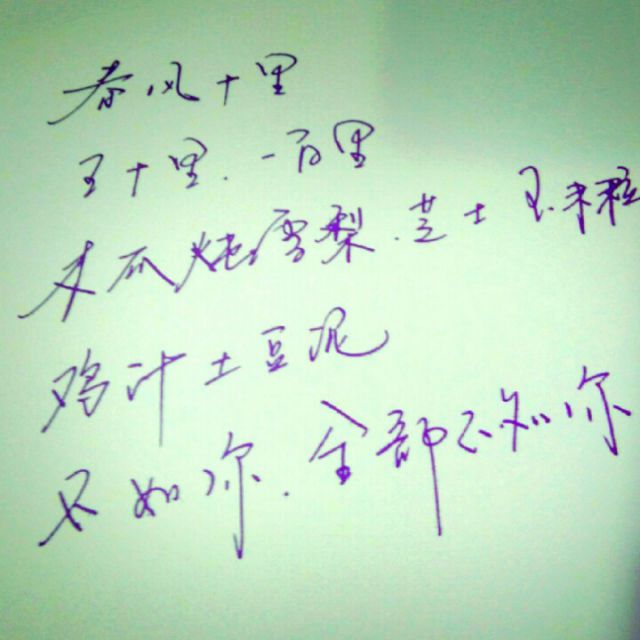 春风十里
五十里.一百里
木瓜炖雪梨.芝士玉米粒
鸡汁土豆泥
不如你.全部不如你